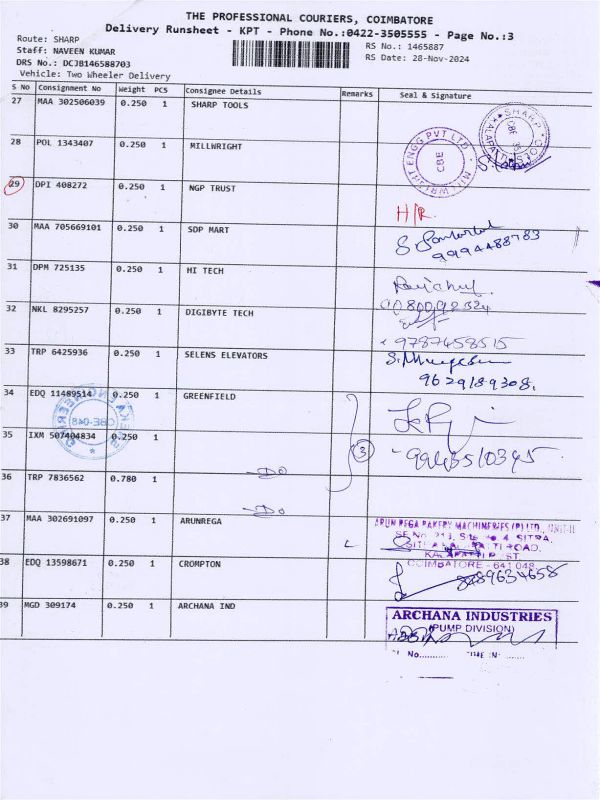 THE PROFESSIONAL COURIERS, COIMBATORE
Delivery Runsheet - KPT - Phone No.:0422-3505555 - Page No.:3
Route: SHARP
RS No.: 1465887
Staff: NAVEEN KUMAR
RS Date: 28-Nov-2024
DRS No.: DCJB146588703
Vehicle: Two Wheeler Delivery
S No Consignment No Weight PCS Consignee Details Remarks Seal & Signature
27 MAA 302506039 0.250 1 SHARP TOOLS
SHARP
CBE
28 POL 1343407 0.250 1 MILLWRIGHT
MILLWRIGHT ENGG PVT LTD
CBE
29 DPI 408272 0.250 1 NGP TRUST
H/R
30 MAA 705669101 0.250 1 SDP MART
9994488783
31 DPM 725135 0.250 1 HI TECH
32 NKL 8295257 0.250 1 DIGIBYTE TECH
9787458515
33 TRP 6425936 0.250 1 SELENS ELEVATORS
9629189308.
34 EDQ 11489514 0.250 1 GREENFIELD
35 IXM 507404834 0.250 1
3
9943510345
36 TRP 7836562 0.780 1
Do
Do
37 MAA 302691097 0.250 1 ARUNREGA
ARUN REGA BAKERY MACHINERIES (P) LTD., UNIT-II
COIMBATORE - 641 048
38 EDQ 13598671 0.250 1 CROMPTON
8489634658
39 MGD 309174 0.250 1 ARCHANA IND
ARCHANA INDUSTRIES
(PUMP DIVISION)